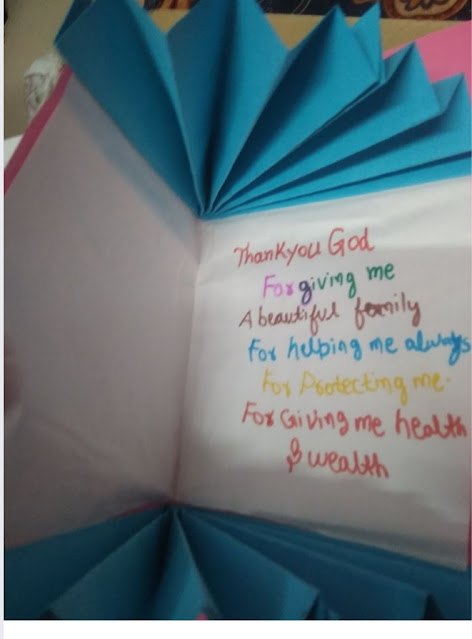 Thankyou God
For giving me
A beautiful family
For helping me always
For Protecting me.
For Giving me health
& wealth